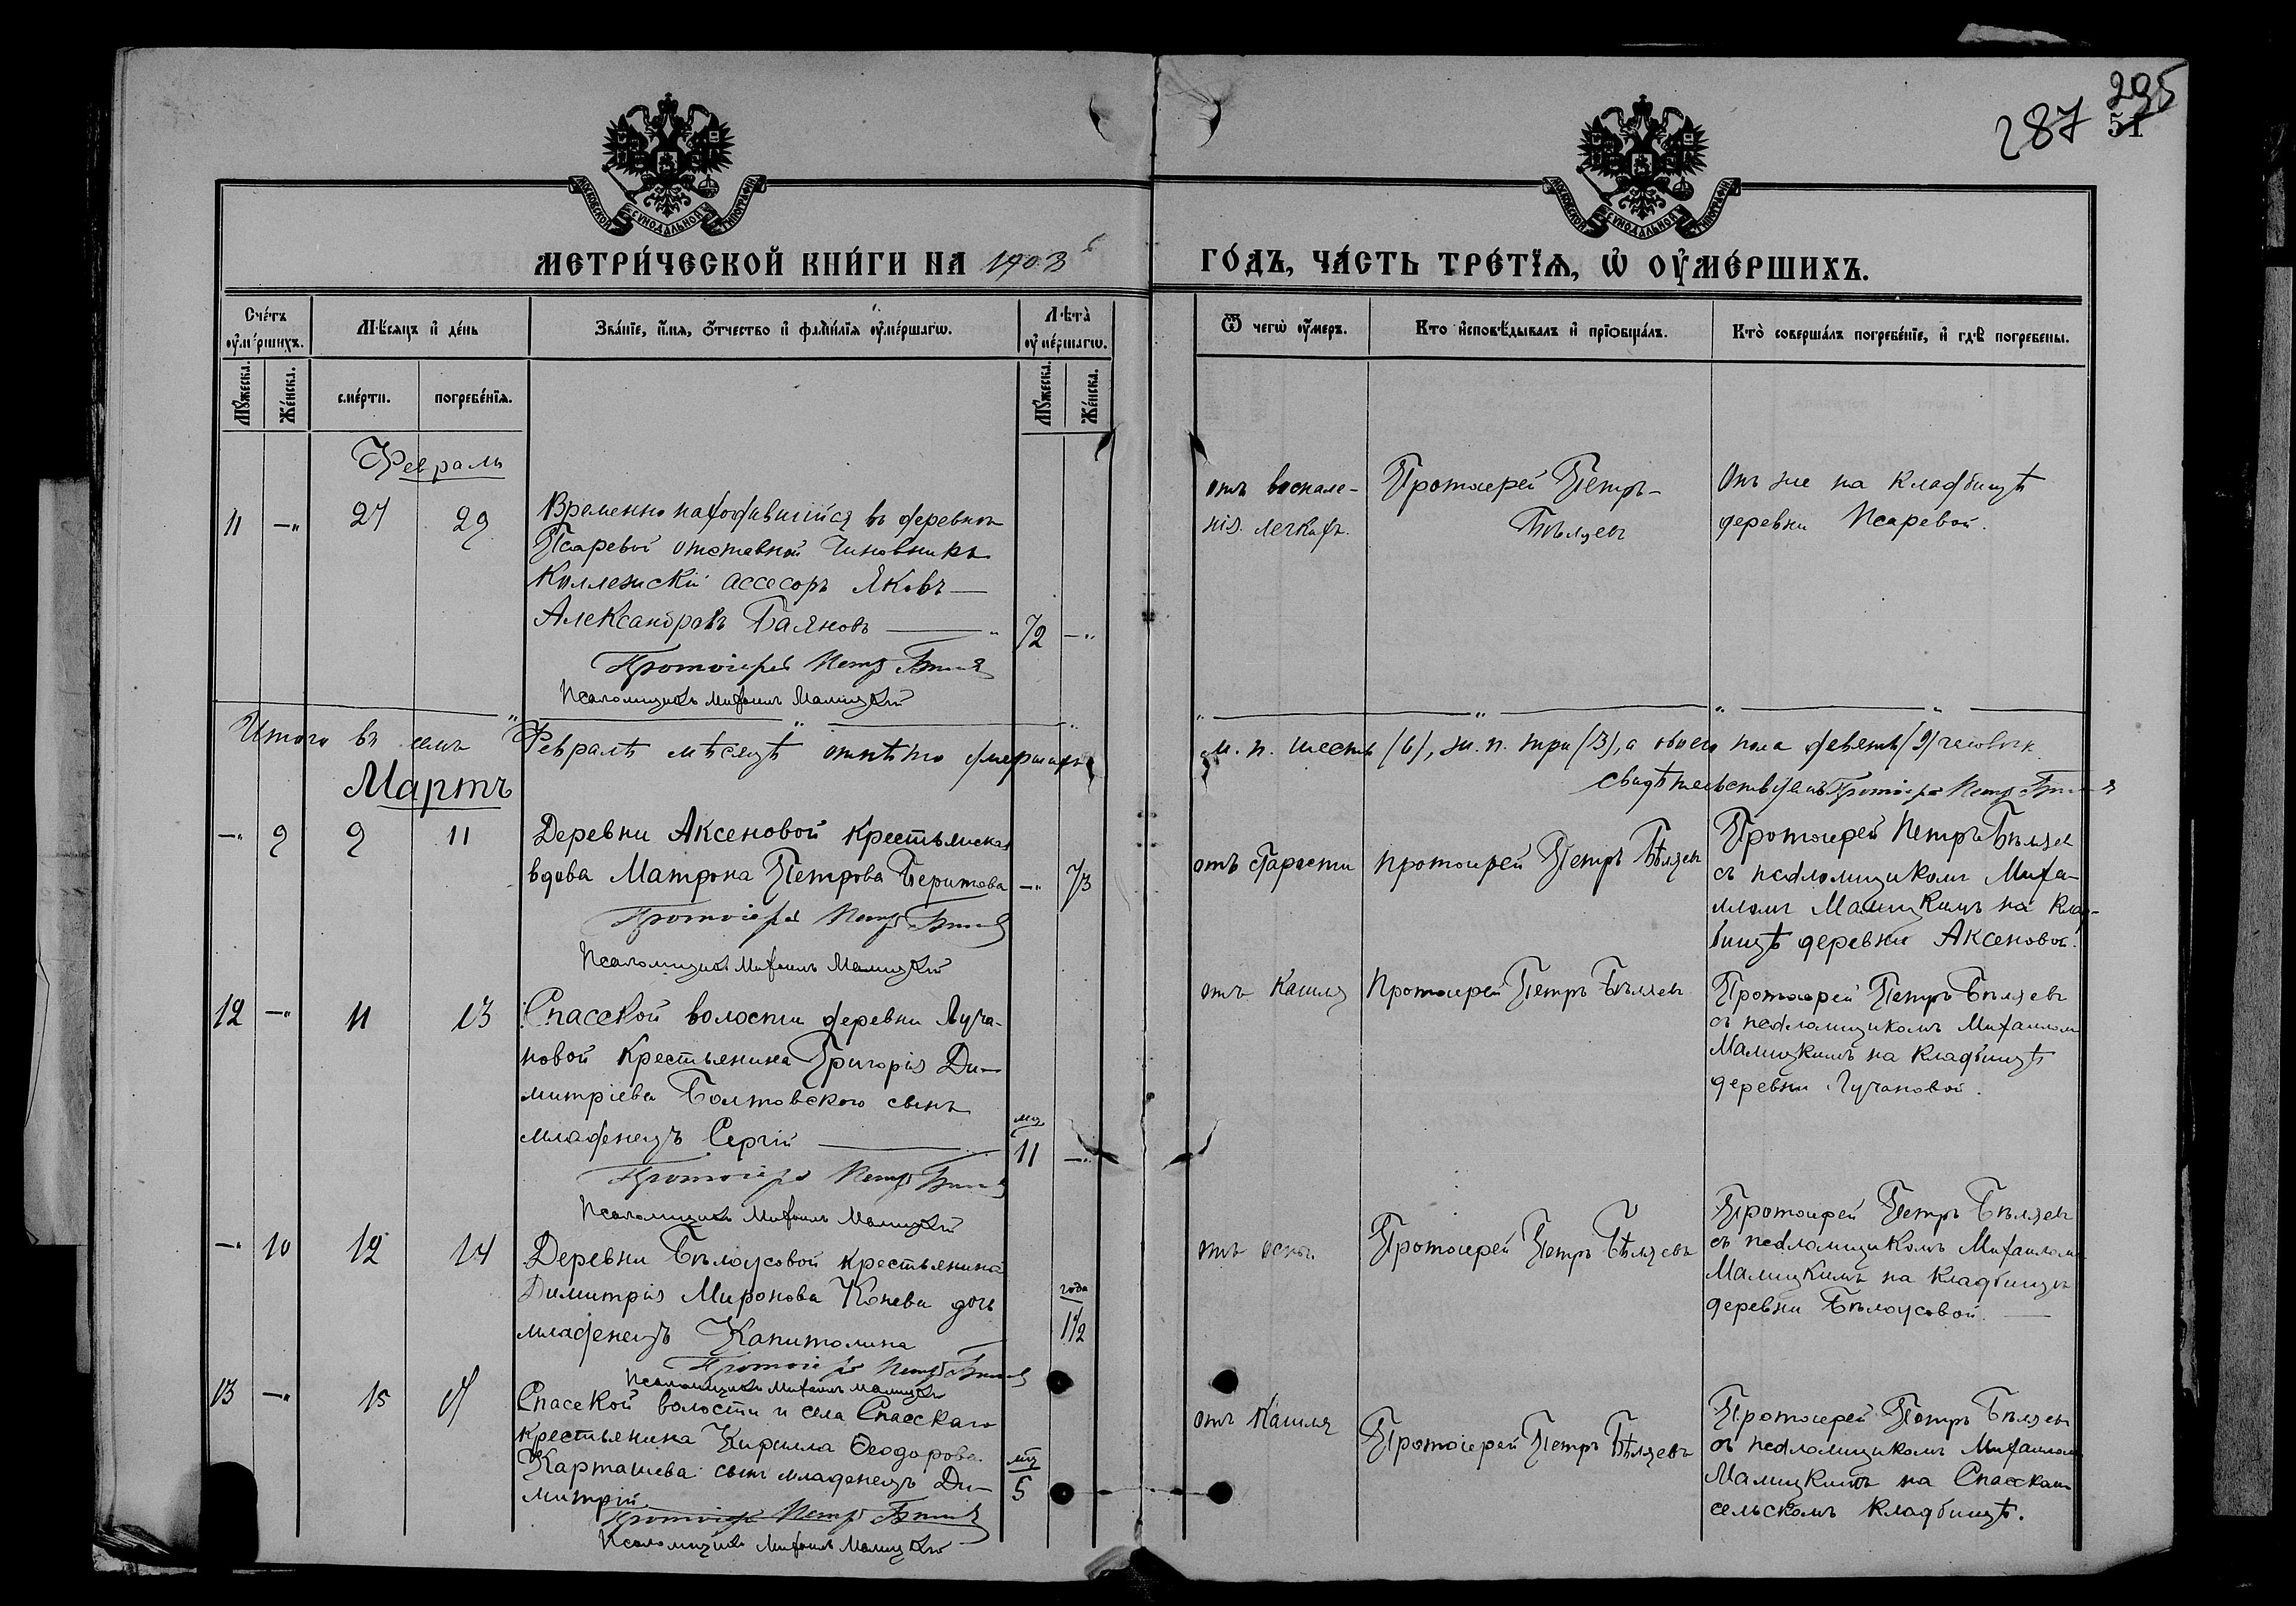 295
287 51
МОСКОВСКОЙ СѴНОДАЛЬНОЙ ТИПОГРАФІИ
МОСКОВСКОЙ СѴНОДАЛЬНОЙ ТИПОГРАФІИ
МЕТРИ́ЧЕСКОЙ КНИ́ГИ НА 1903
ГО́ДЪ, ЧА́СТЬ ТРЕ́ТІѦ, Ѡ҆ ОУ҆МЕ́РШИХЪ.
Сче́тъ оу҆ме́ршихъ.
Мѣ́сяцъ и҆ де́нь
Зва́нїе, и҆́мя, ѻ҆́тчество и҆ фами́лїя оу҆ме́ршагѡ.
Лѣ́та оу҆ме́ршагѡ.
Ѿ чегѡ̀ оу҆́меръ.
Кто̀ и҆сповѣ́дывалъ и҆ прїѻбща́лъ.
Кто̀ соверша́лъ погребе́нїе, и҆ гдѣ̀ погребены.
Мꙋ́жеска. Же́нска. сме́рти. погребе́нїя. Мꙋ́жеска. Же́нска.
Февраль
11 —„ 27 29
Временно находившійся въ деревнѣ
Псаревой отставной Чиновникъ
Коллежскій ассесоръ Яковъ
Александровъ Баяновъ — 72 —„
Протоіерей Петръ Бѣляевъ
Псаломщикъ Михаилъ Малицкій
отъ воспале-
нія легкихъ.
Протоіерей Петръ
Бѣляевъ
Онъ же на кладбищѣ
деревни Псаревой.
Итого въ семъ Февралѣ мѣсяцѣ отпѣто умершихъ
м. п. шесть (6), ж. п. три (3), а обоего пола девять (9) человѣкъ
свидѣтельствуемъ Протоіерей Петръ Бѣляевъ
Мартъ
—„ 9 9 11
Деревни Аксеновой крестьянская
вдова Матрона Петрова —„ 73
Протоіерей Петръ Бѣляевъ
Псаломщикъ Михаилъ Малицкій
отъ старости
Протоіерей Петръ Бѣляевъ
Протоіерей Петръ Бѣляевъ
съ псаломщикомъ Миха-
иломъ Малицкимъ на клад-
бищѣ деревни Аксеновой.
12 —„ 11 13
Спасской волости деревни Луча-
новой крестьянина Григорія Ди-
митріева Болтовского сынъ
младенецъ Сергій — мц. 11 —„
Протоіерей Петръ Бѣляевъ
Псаломщикъ Михаилъ Малицкій
отъ кашля
Протоіерей Петръ Бѣляевъ
Протоіерей Петръ Бѣляевъ
съ псаломщикомъ Михаиломъ
Малицкимъ на кладбищѣ
деревни Лучановой.
—„ 10 12 14
Деревни Бѣлоусовой крестьянина
Димитрія Миронова Конева дочь
младенецъ Капитолина года 1½
Протоіерей Петръ Бѣляевъ
Псаломщикъ Михаилъ Малицкій
отъ оспы.
Протоіерей Петръ Бѣляевъ
Протоіерей Петръ Бѣляевъ
съ псаломщикомъ Михаиломъ
Малицкимъ на кладбищѣ
деревни Бѣлоусовой.
13 —„ 15 17
Спасской волости и села Спасскаго
крестьянина Кирилла Ѳеодорова
Карташева сынъ младенецъ Ди-
митрій. мц 5
Протоіерей Петръ Бѣляевъ
Псаломщикъ Михаилъ Малицкій
отъ Кашля
Протоіерей Петръ Бѣляевъ
Протоіерей Петръ Бѣляевъ
съ псаломщикомъ Михаиломъ
Малицкимъ на Спасскомъ
сельскомъ кладбищѣ.